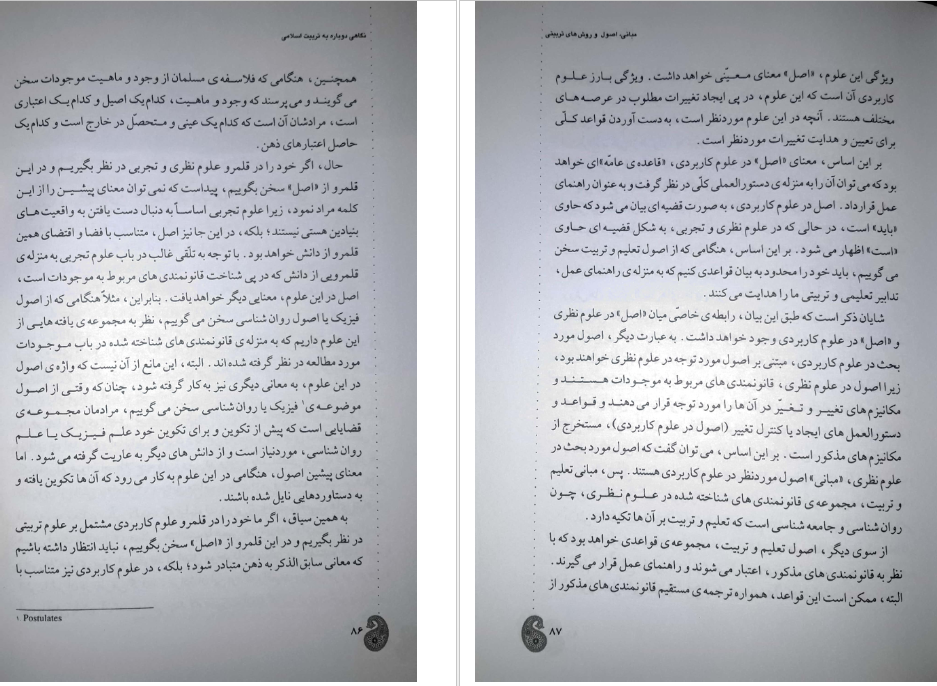 نگاهی دوباره به تربیت اسلامی
همچنین، هنگامی که فلاسفه‌ی مسلمان از وجود و ماهیت موجودات سخن
می گویند و می پرسند که وجود و ماهیت، کدام یک اصیل و کدام یک اعتباری
است، مرادشان آن است که کدام یک عینی و متحصّل در خارج است و کدام یک
حاصل اعتبارهای ذهن.
حال، اگر خود را در قلمرو علوم نظری و تجربی در نظر بگیریم و در این
قلمرو از «اصل» سخن بگوییم، پیداست که نمی توان معنای پیشین را از این
کلمه مراد نمود، زیرا علوم تجربی اساساً به دنبال دست یافتن به واقعیت های
بنیادین هستی نیستند؛ بلکه، در این جا نیز اصل، متناسب با فضا و اقتضای همین
قلمرو از دانش خواهد بود. با توجه به تلقّی غالب در باب علوم تجربی به منزله ی
قلمرویی از دانش که در پی شناخت قانونمندی های مربوط به موجودات است،
اصل در این علوم، معنایی دیگر خواهد یافت. بنابراین، مثلاً هنگامی که از اصول
فیزیک یا اصول روان شناسی سخن می گوییم، نظر به مجموعه ی یافته هایی از
این علوم داریم که به منزله ی قانونمندی های شناخته شده در باب موجودات
مورد مطالعه در نظر گرفته شده اند. البته، این مانع از آن نیست که واژه ی اصول
در این علوم، به معانی دیگری نیز به کار گرفته شود، چنان که وقتی از اصول
موضوعه ی۱ فیزیک یا روان شناسی سخن می گوییم، مرادمان مجموعه ی
قضایایی است که پیش از تکوین و برای تکوین خود علم فیزیک یا علم
روان شناسی، موردنیاز است و از دانش های دیگر به عاریت گرفته می شود. اما
معنای پیشین اصول، هنگامی در این علوم به کار می رود که آن ها تکوین یافته و
به دستاوردهایی نایل شده باشند.
به همین سیاق، اگر ما خود را در قلمرو علوم کاربردی مشتمل بر علوم تربیتی
در نظر بگیریم و در این قلمرو از «اصل» سخن بگوییم، نباید انتظار داشته باشیم
که معانی سابق الذکر به ذهن متبادر شود؛ بلکه، در علوم کاربردی نیز متناسب با
۱. Postulates
۸۶
مبانی، اصول و روش های تربیتی
ویژگی این علوم، «اصل» معنای معیّنی خواهد داشت. ویژگی بارز علوم
کاربردی آن است که این علوم، در پی ایجاد تغییرات مطلوب در عرصه های
مختلف هستند. آنچه در این علوم موردنظر است، به دست آوردن قواعد کلّی
برای تعیین و هدایت تغییرات موردنظر است.
بر این اساس، معنای «اصل» در علوم کاربردی، «قاعده ی عامّه»ای خواهد
بود که می توان آن را به منزله ی دستورالعملی کلّی در نظر گرفت و به عنوان راهنمای
عمل قرار داد. اصل در علوم کاربردی، به صورت قضیه ای بیان می شود که حاوی
«باید» است، در حالی که در علوم نظری و تجربی، به شکل قضیه ای حاوی
«است» اظهار می شود. بر این اساس، هنگامی که از اصول تعلیم و تربیت سخن
می گوییم، باید خود را محدود به بیان قواعدی کنیم که به منزله ی راهنمای عمل،
تدابیر تعلیمی و تربیتی ما را هدایت می کنند.
شایان ذکر است که طبق این بیان، رابطه ی خاصّی میان «اصل» در علوم نظری
و «اصل» در علوم کاربردی وجود خواهد داشت. به عبارت دیگر، اصول مورد
بحث در علوم کاربردی، مبتنی بر اصول مورد توجه در علوم نظری خواهند بود،
زیرا اصول در علوم نظری، قانونمندی های مربوط به موجودات هستند و
مکانیزم های تغییر و تغیّر در آن ها را مورد توجه قرار می دهند و قواعد و
دستورالعمل های ایجاد یا کنترل تغییر (اصول در علوم کاربردی)، مستخرج از
مکانیزم های مذکور است. بر این اساس، می توان گفت که اصول مورد بحث در
علوم نظری، «مبانی» اصول موردنظر در علوم کاربردی هستند. پس، مبانی تعلیم
و تربیت، مجموعه ی قانونمندی های شناخته شده در علوم نظری، چون
روان شناسی و جامعه شناسی است که تعلیم و تربیت بر آن ها تکیه دارد.
از سوی دیگر، اصول تعلیم و تربیت، مجموعه ی قواعدی خواهد بود که با
نظر به قانونمندی های مذکور، اعتبار می شوند و راهنمای عمل قرار می گیرند.
البته، ممکن است این قواعد، همواره ترجمه ی مستقیم قانونمندی های مذکور از
۸۷